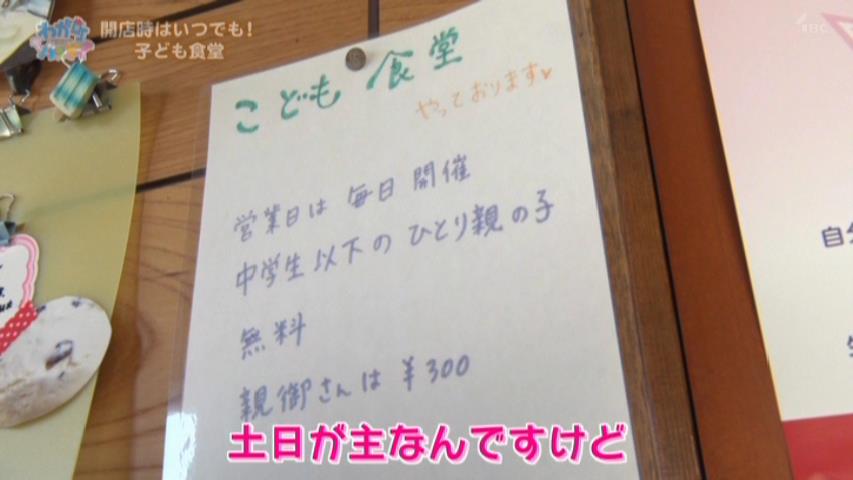 開店時はいつでも!
子ども食堂
こども食堂
やっております♥
営業日は毎日開催
中学生以下のひとり親の子
無料
親御さんは¥300
土日が主なんですけど